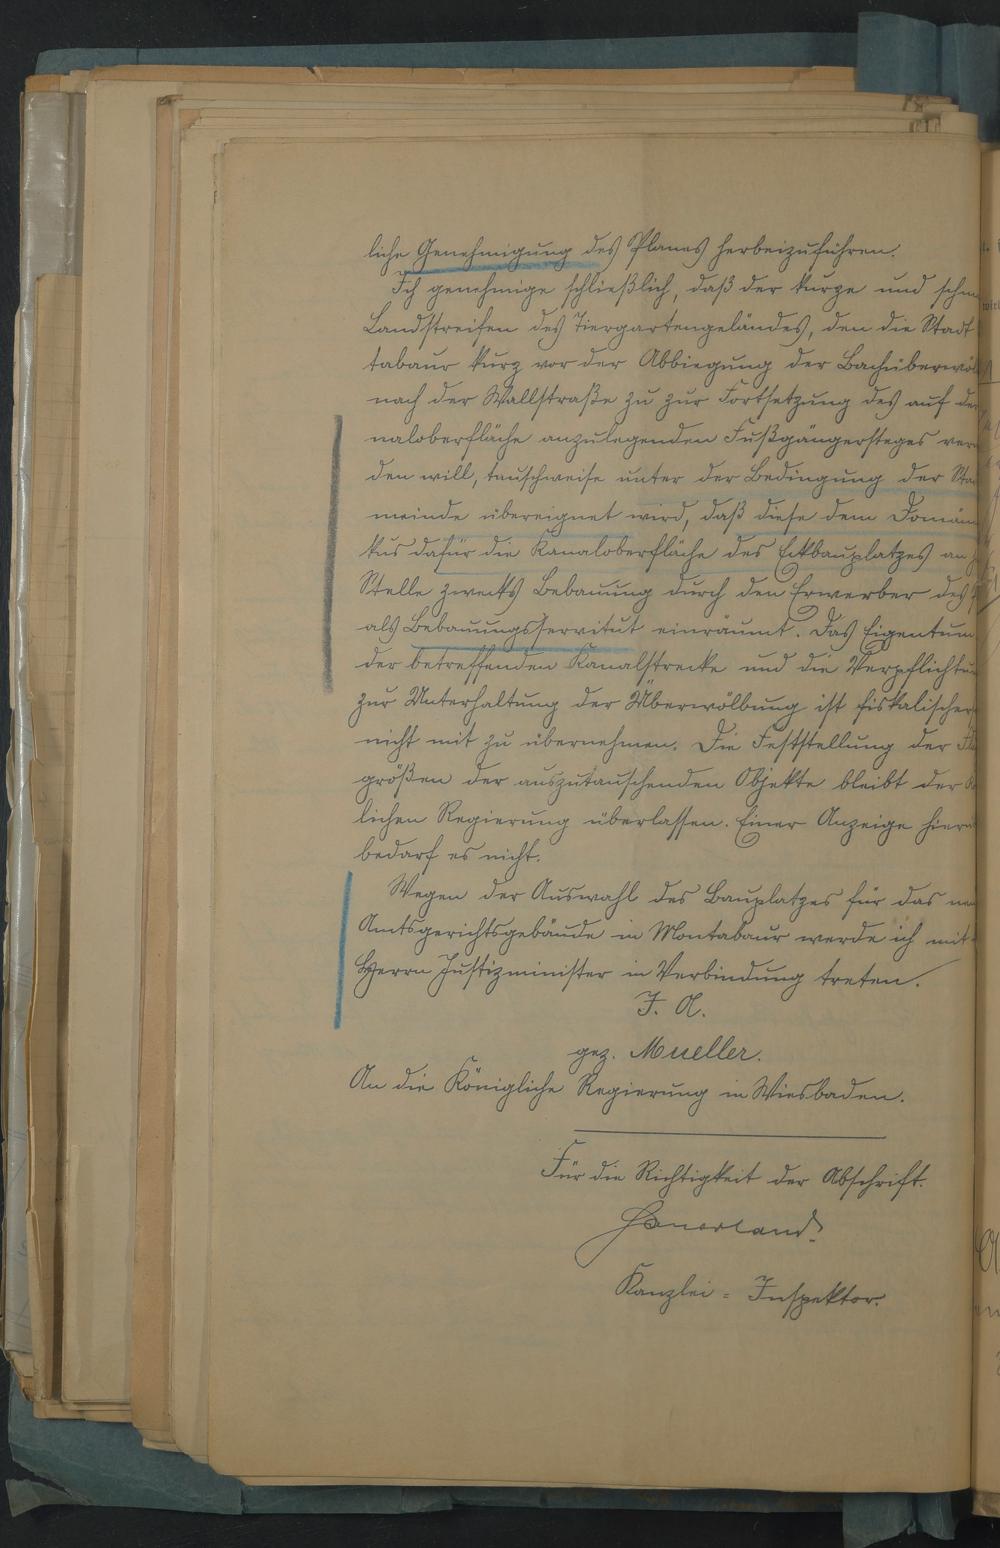 liche Genehmigung des Planes herbeizuführen.
Ich genehmige schließlich, daß der kurze und schm
Landstreifen des Tiergartengeländes, den die Stadt
tabaur kurz vor der Abbiegung der Bachüberwöl
nach der Wallstraße zu zur Fortsetzung des auf der
naloberfläche anzulegenden Fußgängersteges ver
den will, tauschweise unter der Bedingung der Sta
meinde übereignet wird, daß diese dem Domän
kus dafür die Kanaloberfläche des Eckbauplatzes an
Stelle zwecks Bebauung durch den Erwerber des
als Bebauungsservitut einräumt. Das Eigentum
der betreffenden Kanalstrecke und die Verpflichtun
zur Unterhaltung der Überwölbung ist fiskalischer
nicht mit zu übernehmen. Die Feststellung der Flä
größen der auszutauschenden Objekte bleibt der
lichen Regierung überlassen. Einer Anzeige hier
bedarf es nicht.
Wegen der Auswahl des Bauplatzes für das ne
Amtsgerichtsgebäude in Montabaur werde ich mit
Herrn Justizminister in Verbindung treten.
J. A.
gez. Mueller.
An die Königliche Regierung in Wiesbaden.
Für die Richtigkeit der Abschrift.
Kanzlei = Inspektor.